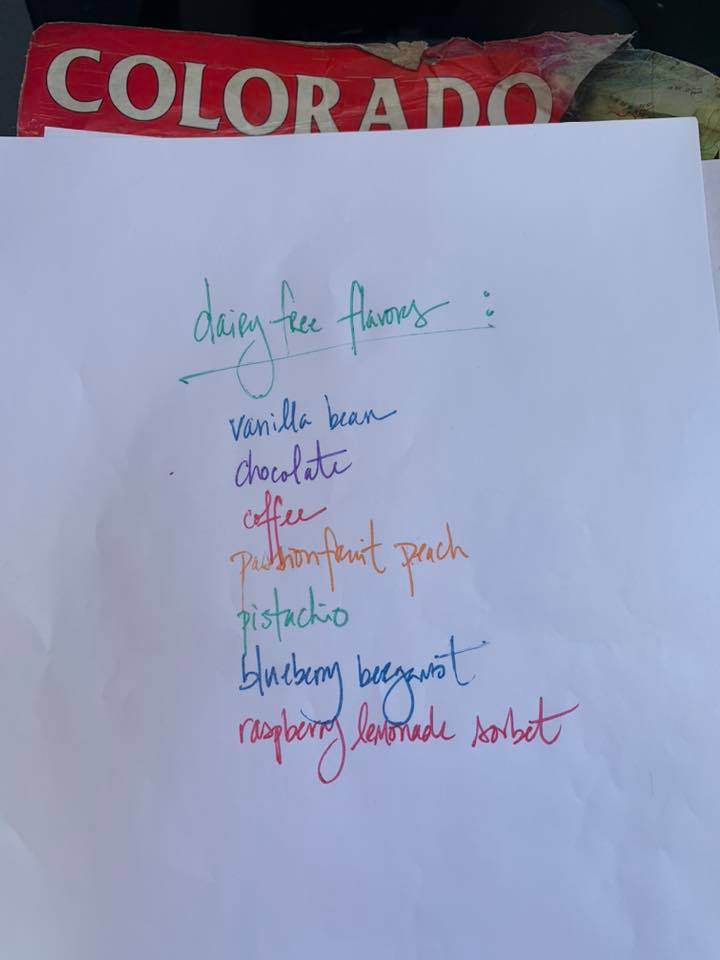 COLORADO
dairy free flavors :
vanilla bean
chocolate
coffee
passionfruit peach
pistachio
blueberry bergamot
raspberry lemonade sorbet